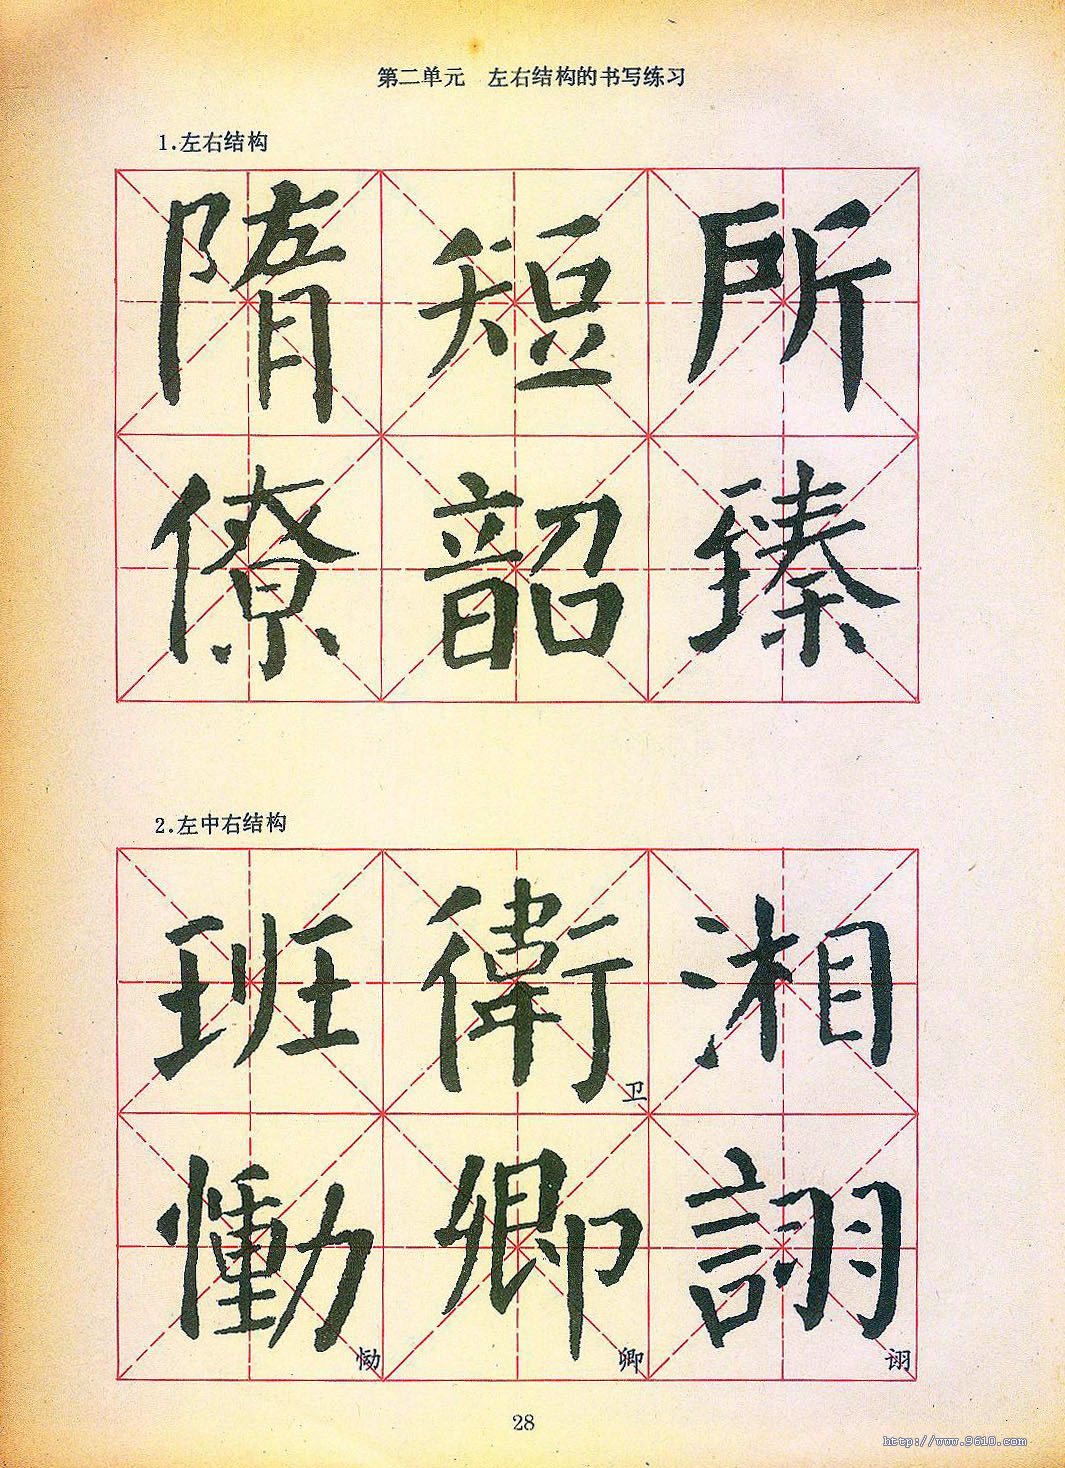 第二单元 左右结构的书写练习
1.左右结构
隋短所
僚韶臻
2.左中右结构
班衛湘
卫
慟卿詡
恸 卿 诩
28
http://www.9610.com